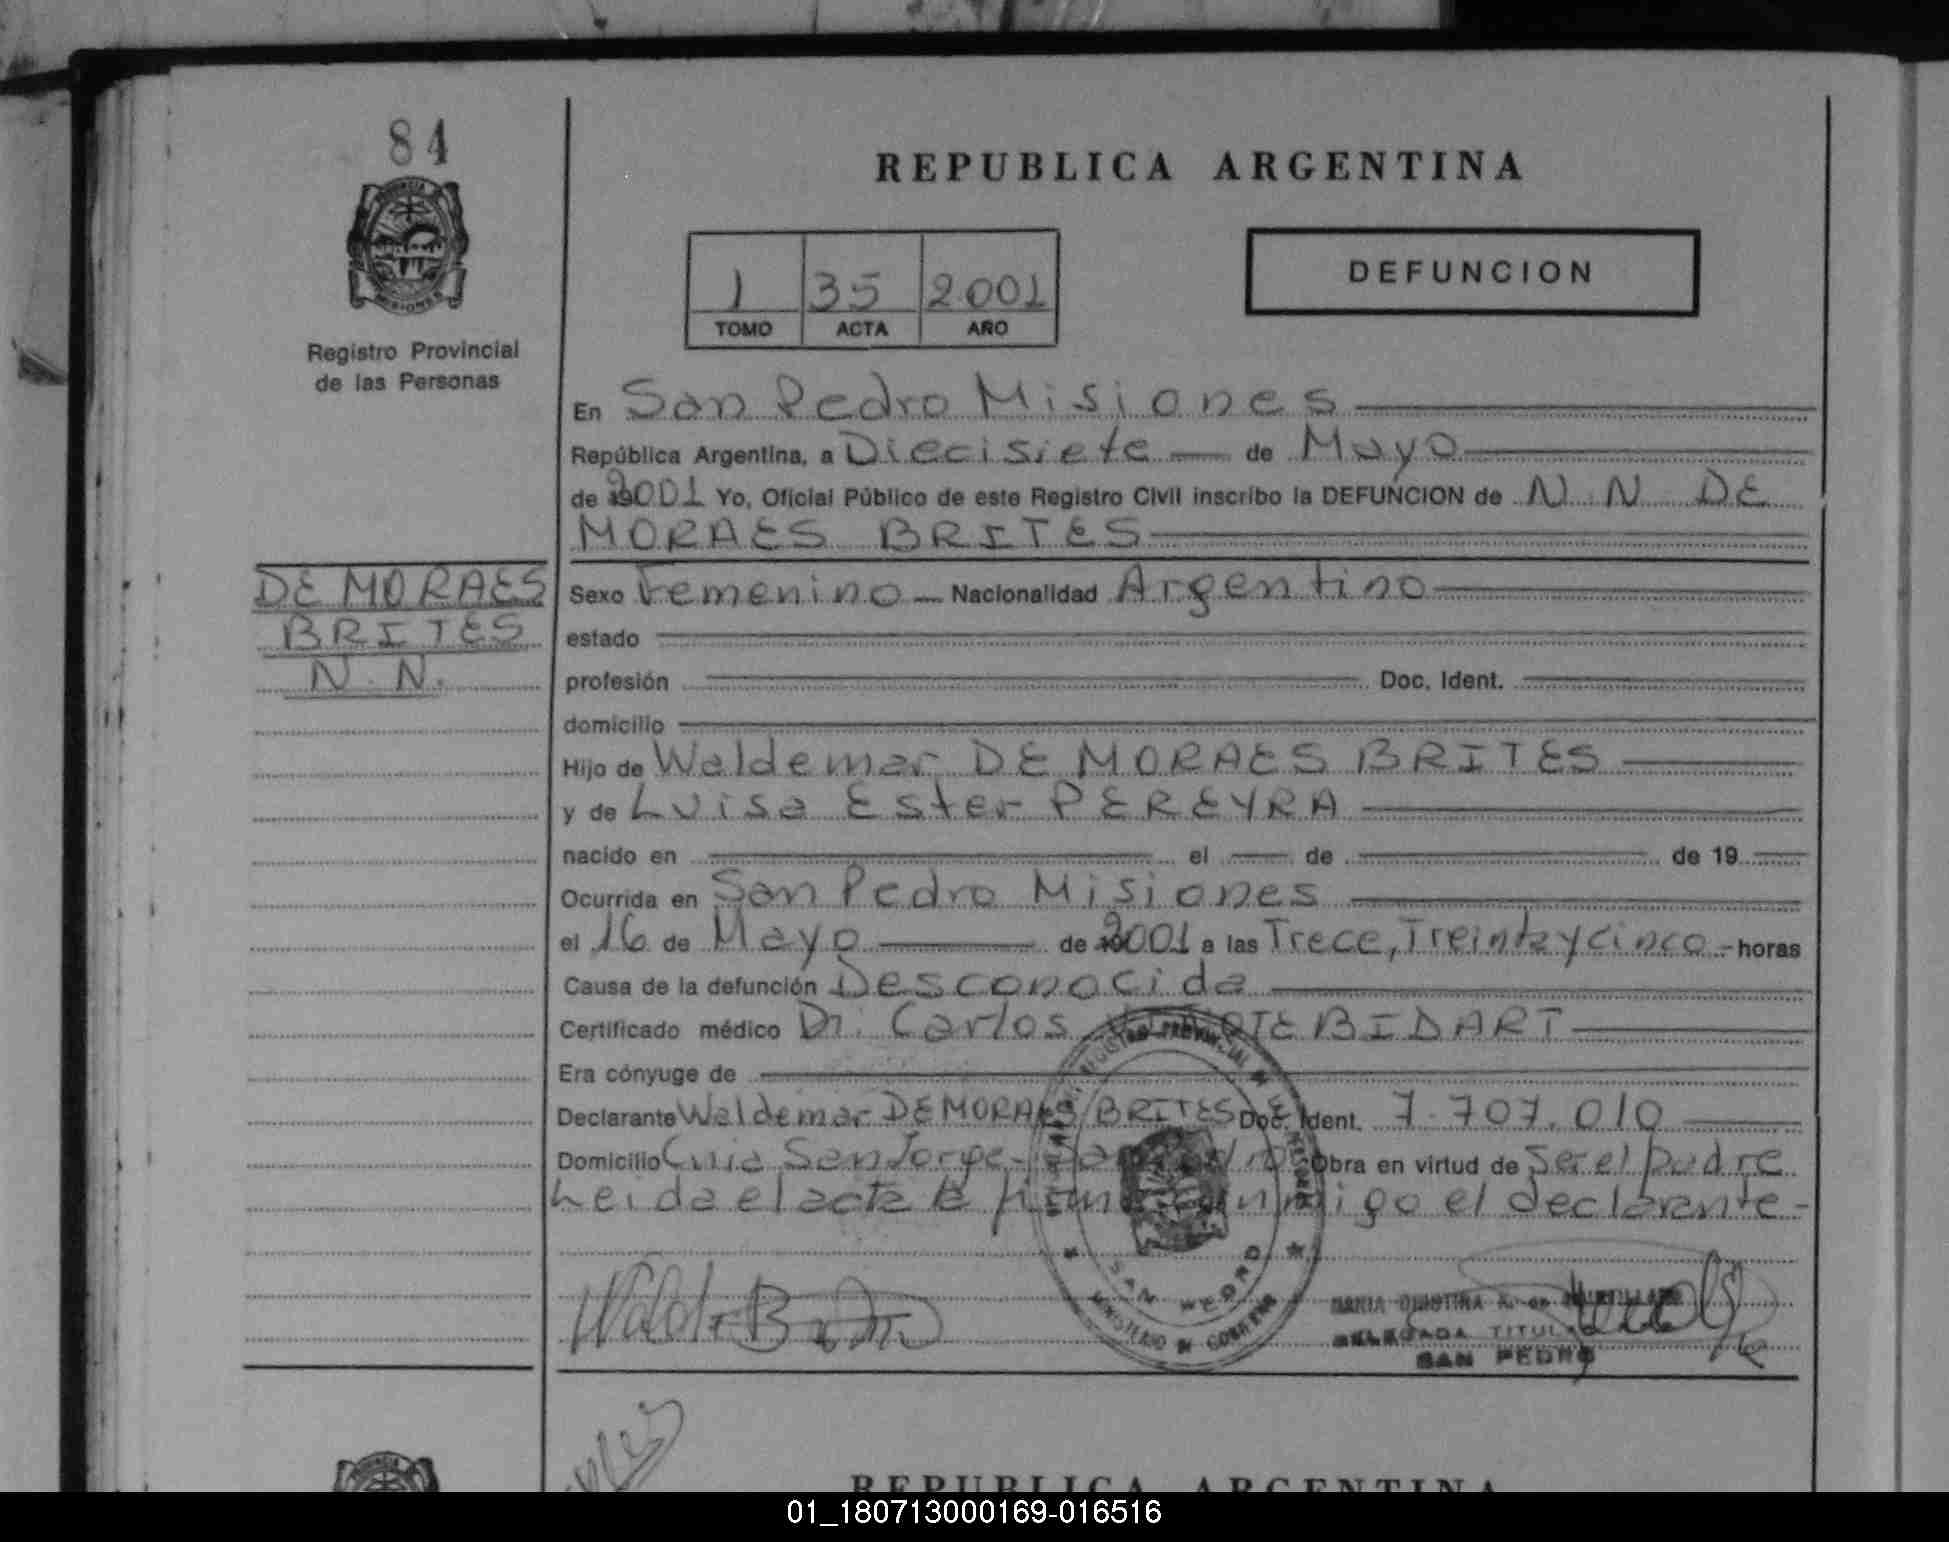 84
PROVINCIA
MISIONES
Registro Provincial
de las Personas
REPUBLICA ARGENTINA
1 35 2001
TOMO ACTA AÑO
DEFUNCION
En San Pedro Misiones
República Argentina, a Diecisiete de Mayo
de 2001 Yo, Oficial Público de este Registro Civil inscribo la DEFUNCION de N. N. DE
MORAES BRITES
DE MORAES
BRITES
N. N.
Sexo Femenino Nacionalidad Argentino
estado
profesión Doc. Ident.
domicilio
Hijo de Waldemar DE MORAES BRITES
y de Luisa Ester PEREYRA
nacido en el de de 19
Ocurrida en San Pedro Misiones
el 16 de Mayo de 2001 a las Trece, Treinta y cinco - horas
Causa de la defunción Desconocida
Certificado médico Dr. Carlos BIDART
Era cónyuge de
Declarante Waldemar DE MORAES BRITES Doc. Ident. 7.707.010
Domicilio San Jorge - San Pedro Obra en virtud de Ser el padre
Leida el acta la firma conmigo el declarante -
REGISTRO PROVINCIAL DE LAS PERSONAS
SAN PEDRO
MINISTERIO DE GOBIERNO
MARIA CRISTINA A. de
DELEGADA TITULAR
SAN PEDRO
PROVINCIA
REPUBLICA ARGENTINA
01_180713000169-016516